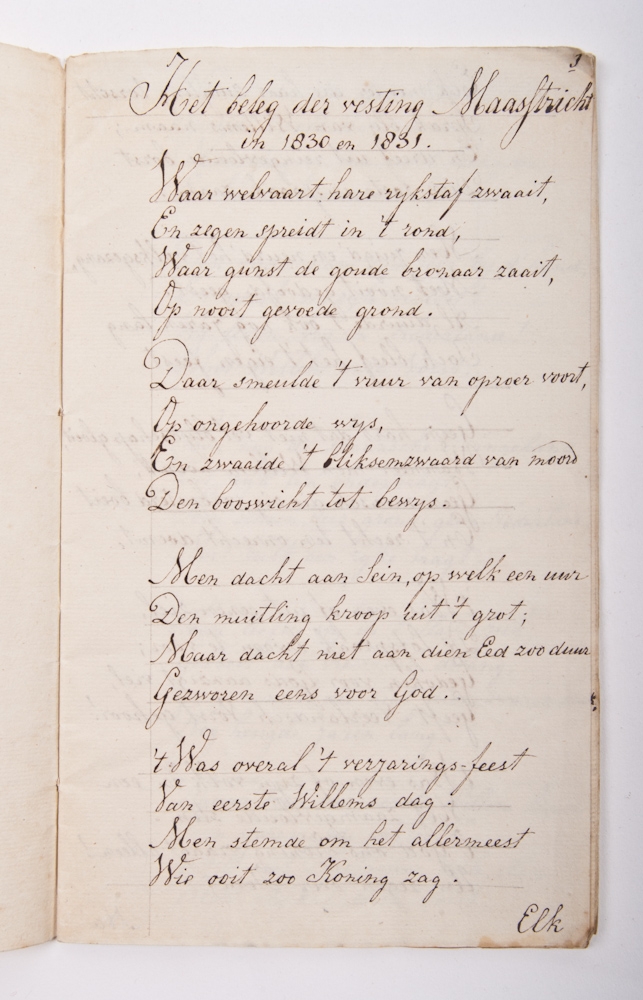 3
Het beleg der vesting Maasstricht
in 1830 en 1831.
Waar welvaart hare rykstaf zwaait,
En zegen spreidt in 't rond,
Waar gunst de goude bronaar zaait,
Op nooit gevoede grond.
Daar smeulde 't vuur van oproer voort,
Op ongehoorde wys,
En zwaaide 't bliksemzwaard van moord
Den booswicht tot bewys.
Men dacht aan Sein, op welk een uur
Den muitling kroop uit 't grot;
Maar dacht niet aan dien Eed zoo duur
Gezworen eens voor God.
't Was overal 't verjarings-feest
Van eerste Willems dag.
Men stemde om het allermeest
Wie ooit zoo Koning zag.
Elk